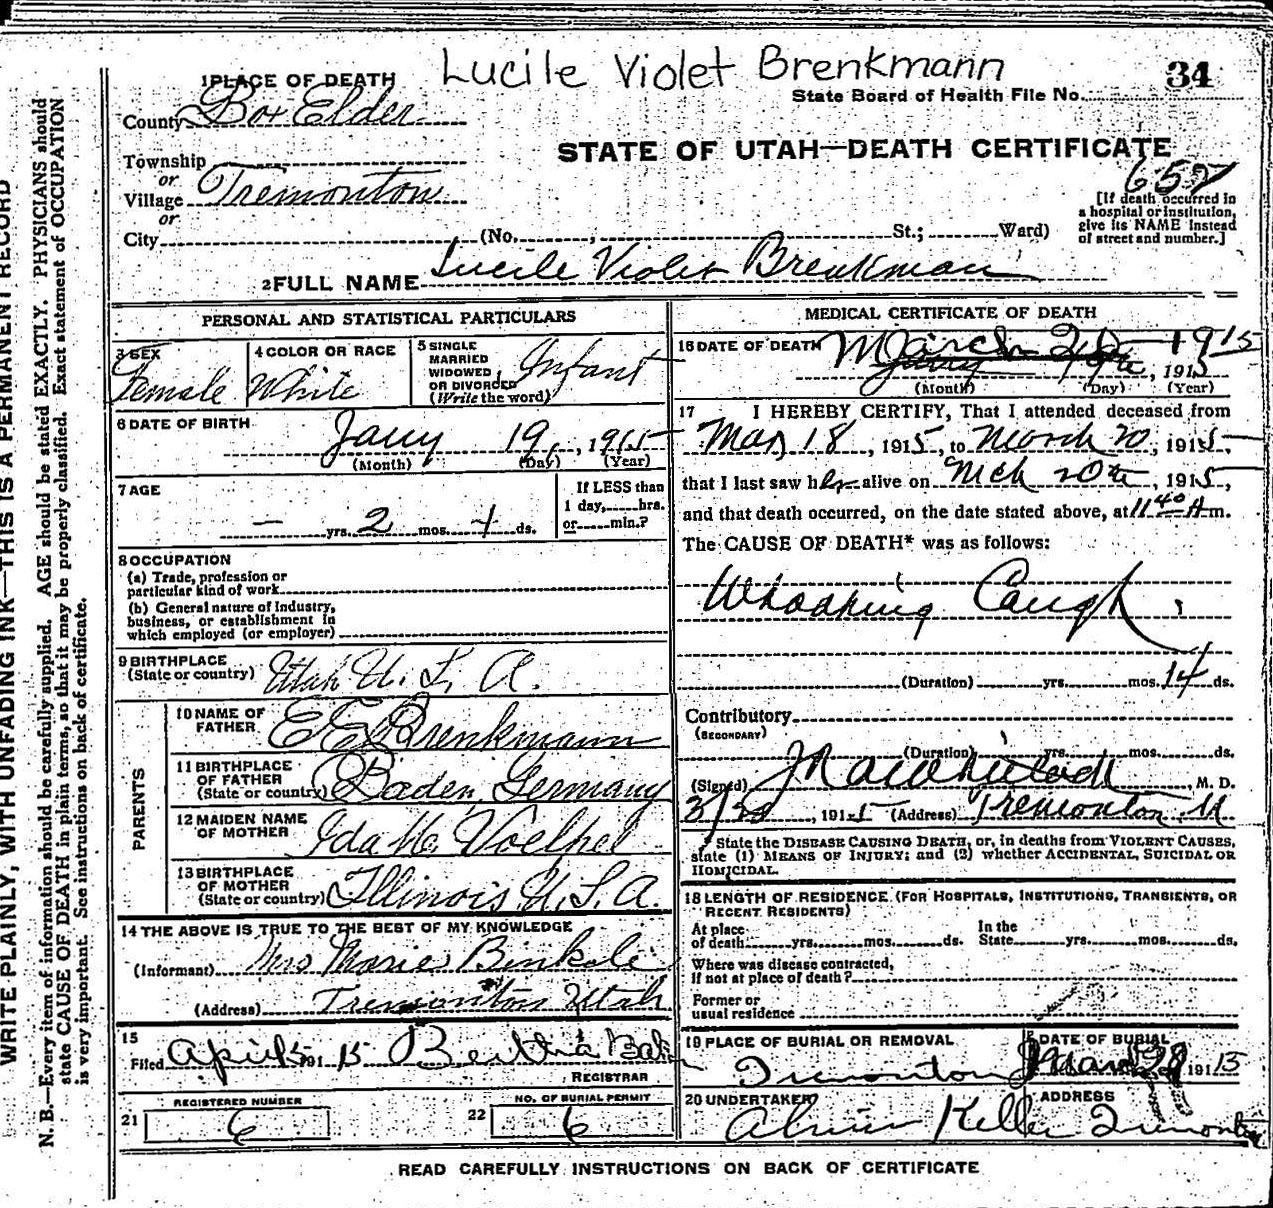 Lucile Violet Brenkmann
34
State Board of Health File No.
1 PLACE OF DEATH
County Box Elder
STATE OF UTAH—DEATH CERTIFICATE
Township
or
Village Tremonton
or
City (No. , St.; Ward)
[If death occurred in
a hospital or institution,
give its NAME instead
of street and number.]
2 FULL NAME Lucile Violet Brenkman
PERSONAL AND STATISTICAL PARTICULARS
3 SEX
Female
4 COLOR OR RACE
White
5 SINGLE
MARRIED
WIDOWED
OR DIVORCED
(Write the word)
Infant
6 DATE OF BIRTH
Jany 19, 1915
(Month) (Day) (Year)
7 AGE
— yrs. 2 mos. 1 ds.
If LESS than
1 day, hrs.
or min.?
8 OCCUPATION
(a) Trade, profession or
particular kind of work
(b) General nature of industry,
business, or establishment in
which employed (or employer)
9 BIRTHPLACE
(State or country) Utah U. S. A.
PARENTS
10 NAME OF
FATHER E E Brenkmann
11 BIRTHPLACE
OF FATHER
(State or country) Baden Germany
12 MAIDEN NAME
OF MOTHER Ida M. Voelpel
13 BIRTHPLACE
OF MOTHER
(State or country) Illinois U. S. A.
14 THE ABOVE IS TRUE TO THE BEST OF MY KNOWLEDGE
(Informant) Mrs Marie Binkele
(Address) Tremonton Utah
15
Filed April 5 1915 Bertha
REGISTRAR
21 REGISTERED NUMBER
6
22 NO. OF BURIAL PERMIT
6
MEDICAL CERTIFICATE OF DEATH
16 DATE OF DEATH March 20 1915
, 1915
(Month) (Day) (Year)
17 I HEREBY CERTIFY, That I attended deceased from
Mar 18, 1915, to March 20, 1915,
that I last saw her alive on Mch 20th, 1915,
and that death occurred, on the date stated above, at 11 40 A m.
The CAUSE OF DEATH* was as follows:
Whooping Cough,
(Duration) yrs. mos. 14 ds.
Contributory
(SECONDARY)
(Duration) yrs. mos. ds.
(Signed) M. D.
3/20, 1915 (Address) Tremonton U
* State the DISEASE CAUSING DEATH, or, in deaths from VIOLENT CAUSES,
state (1) MEANS OF INJURY; and (2) whether ACCIDENTAL, SUICIDAL OR
HOMICIDAL.
18 LENGTH OF RESIDENCE (FOR HOSPITALS, INSTITUTIONS, TRANSIENTS, OR
RECENT RESIDENTS)
At place
of death yrs. mos. ds.
In the
State yrs. mos. ds.
Where was disease contracted,
if not at place of death?
Former or
usual residence
19 PLACE OF BURIAL OR REMOVAL
Tremonton
DATE OF BURIAL
March 1915
20 UNDERTAKER
Keller
ADDRESS
Tremonton
READ CAREFULLY INSTRUCTIONS ON BACK OF CERTIFICATE
WRITE PLAINLY, WITH UNFADING INK—THIS IS A PERMANENT RECORD
N. B.—Every item of information should be carefully supplied. AGE should be stated EXACTLY. PHYSICIANS should
state CAUSE OF DEATH in plain terms, so that it may be properly classified. Exact statement of OCCUPATION
is very important. See instructions on back of certificate.